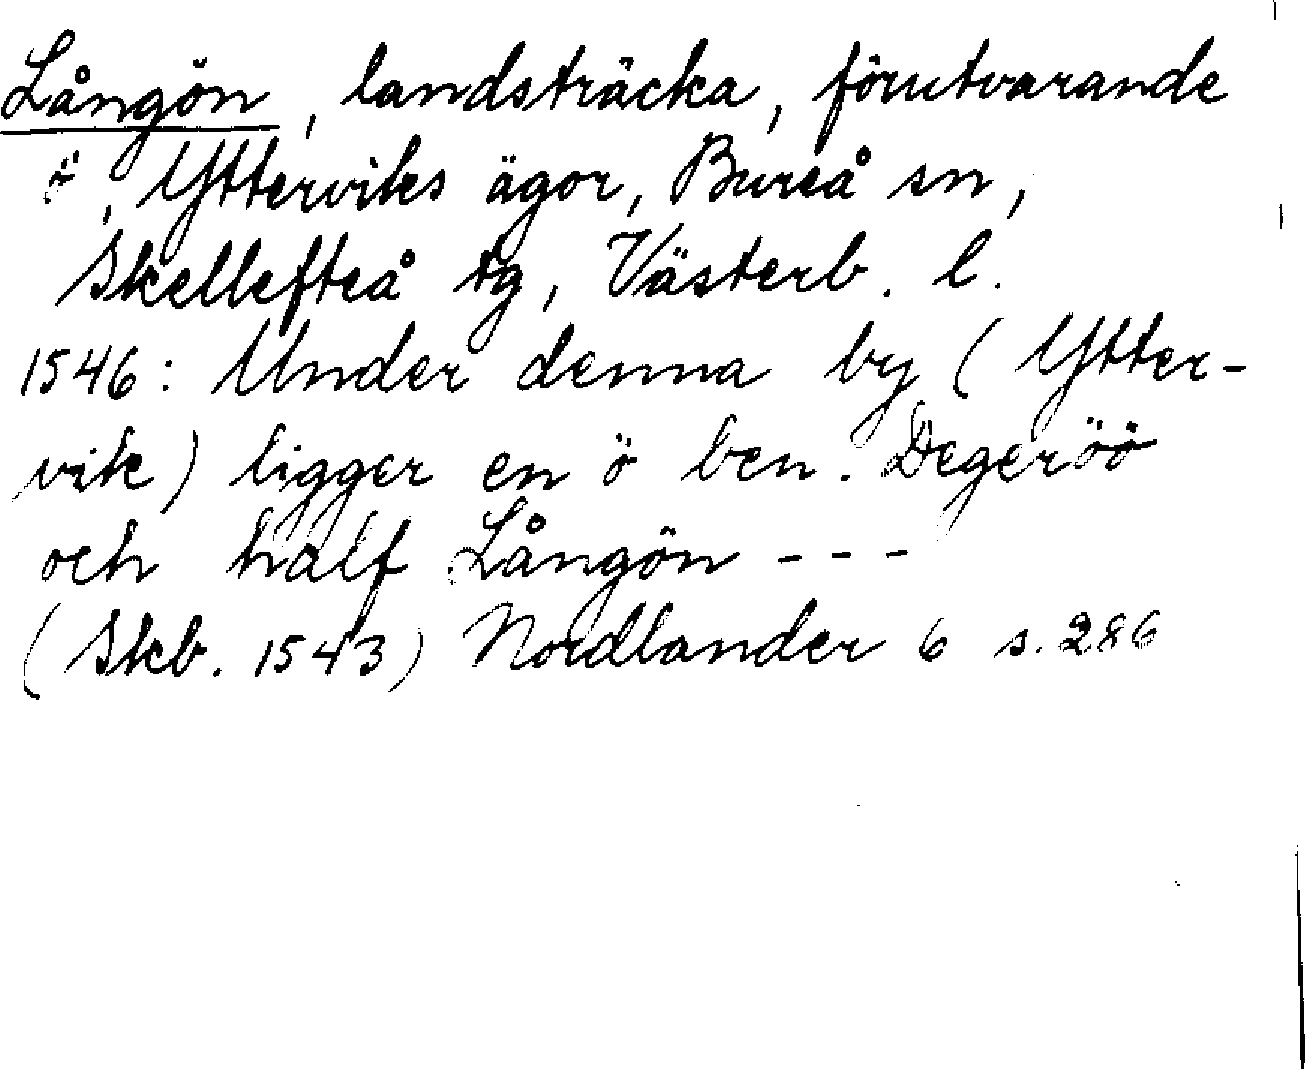 Långön, landsträcka, förutvarande
ö, Ytterviks ägor, Bureå sn,
Skellefteå tg, Västerb. l.
1546: Under denna by (Ytter-
vik) ligger en ö ben. Degeröö
och half Långön ---
(Skb. 1543) Nordlander 6 s. 286